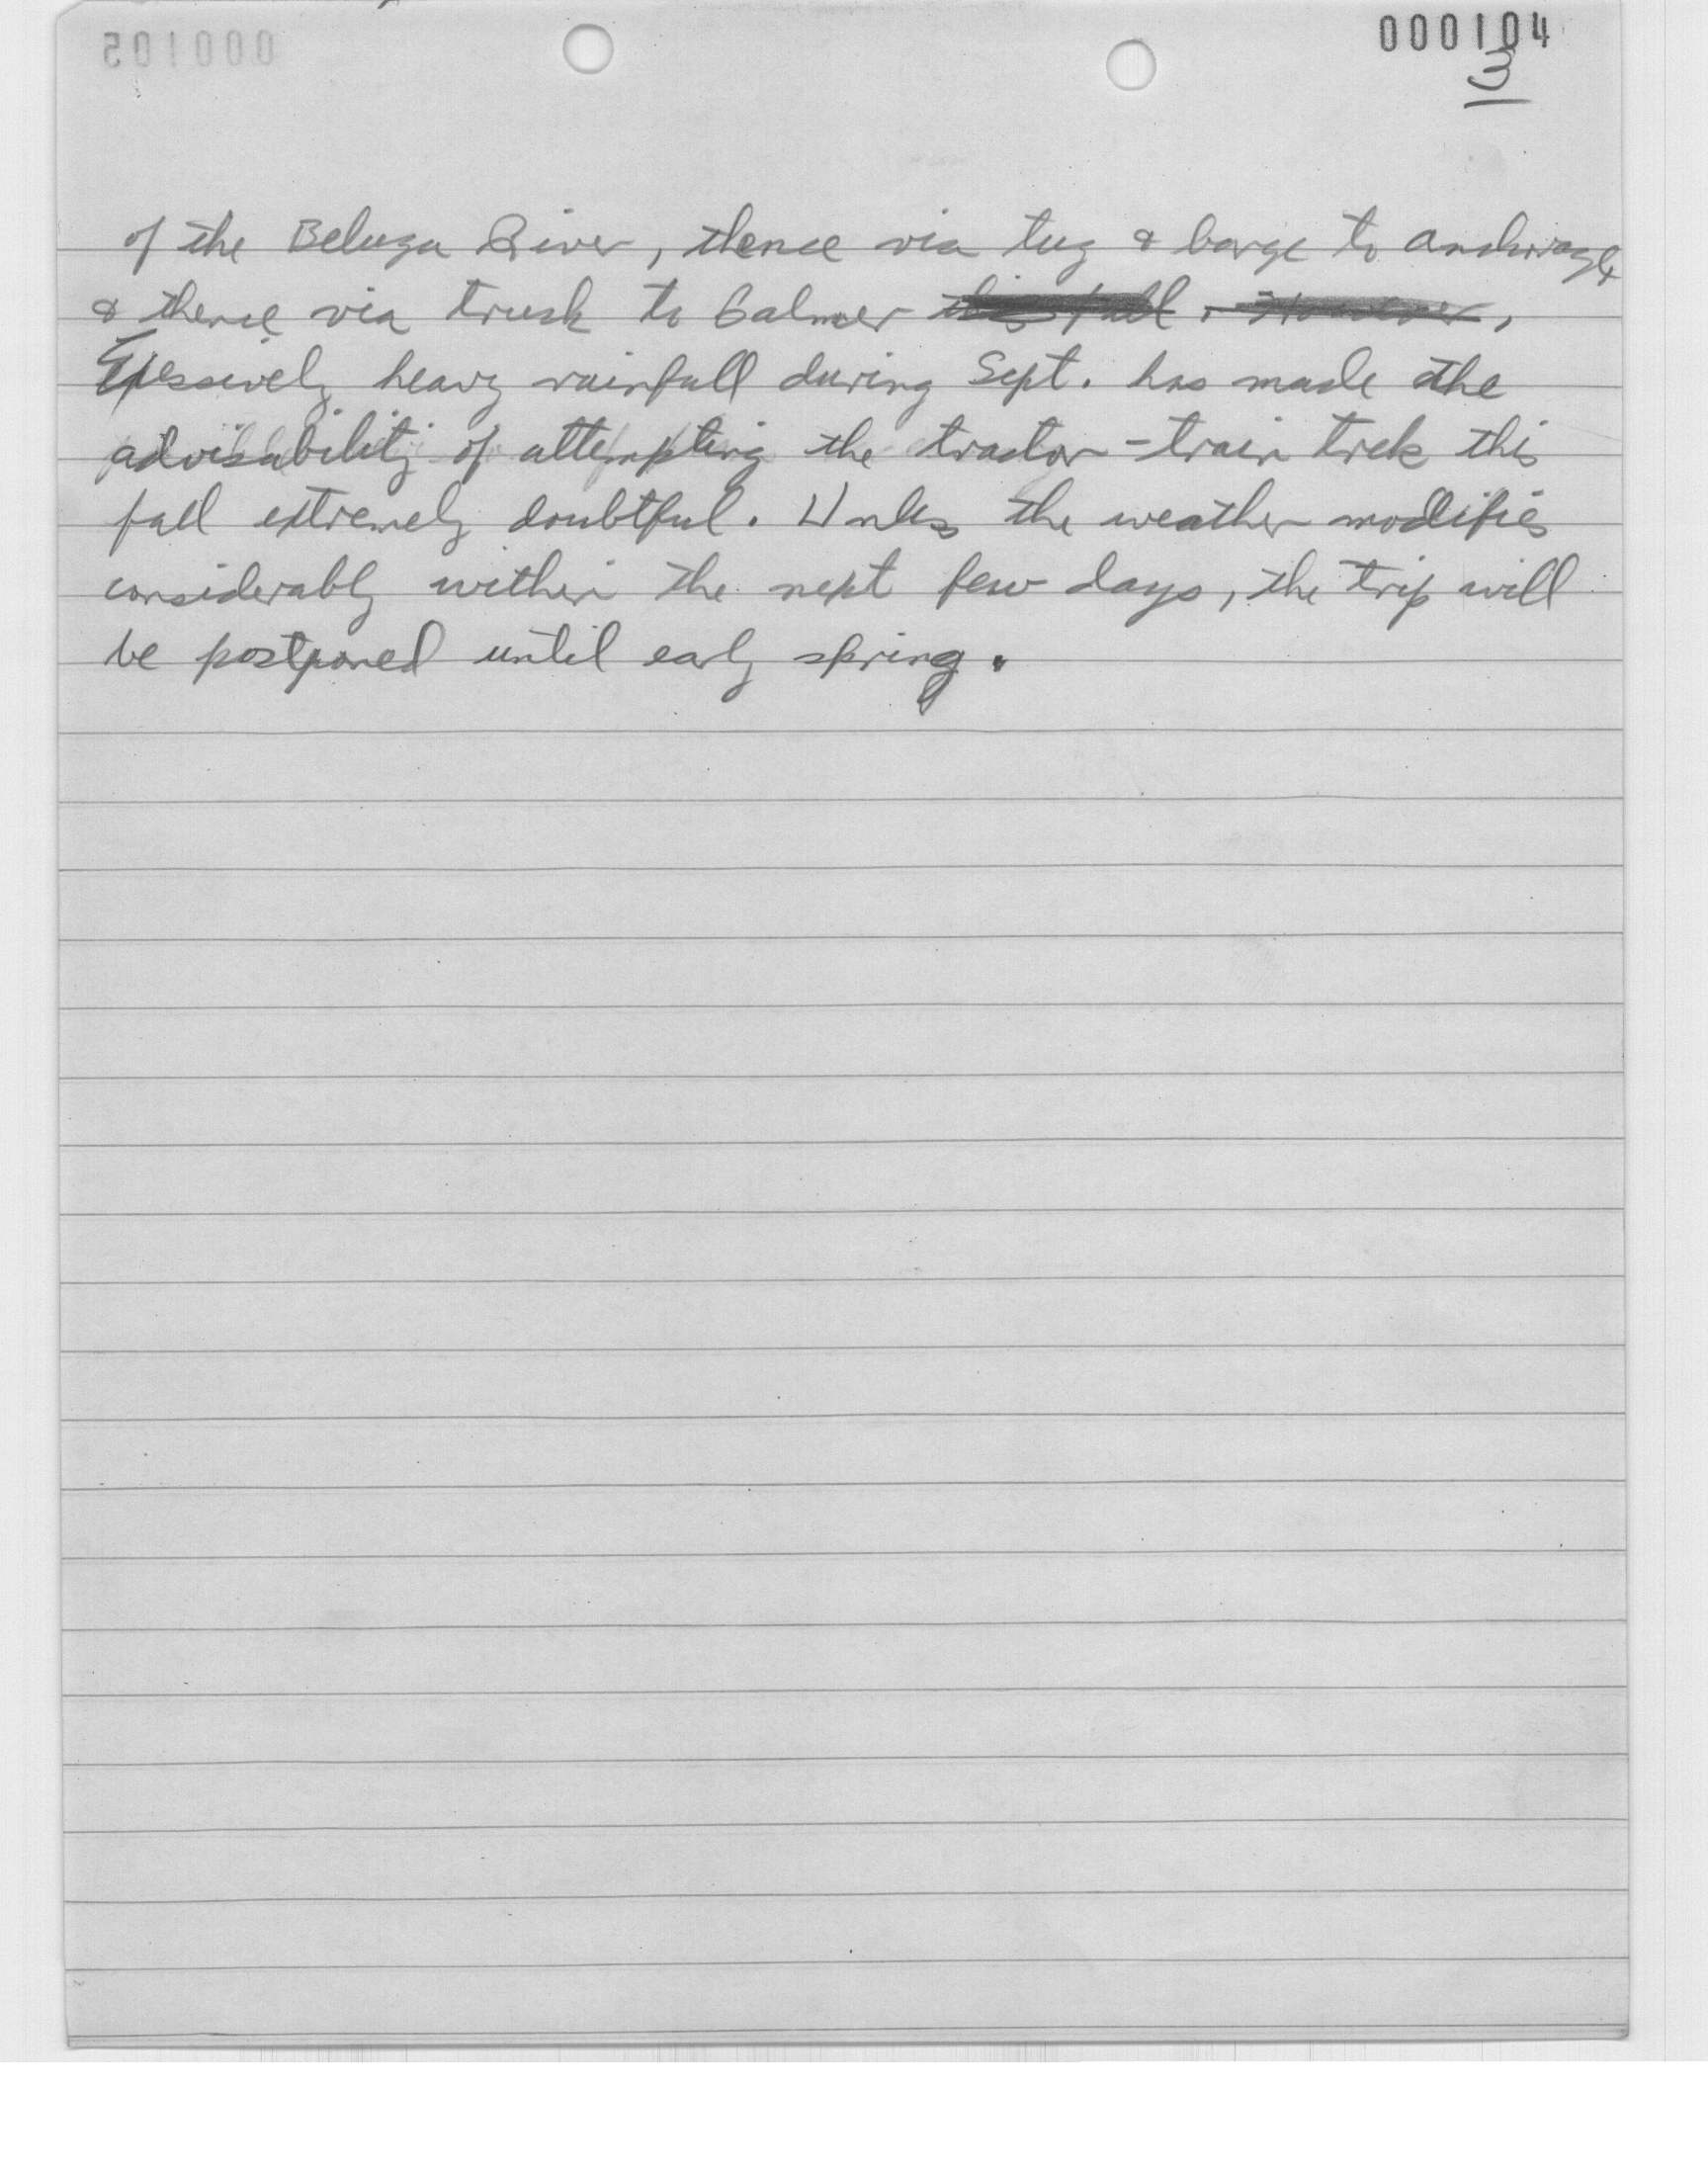 000105
000104
13
of the Beluga River, thence via tug & barge to Anchorage,
& thence via truck to Palmer this fall. However,
Exessively heavy rainfall during Sept. has made the
advisability of attempting the tractor-train trek this
fall extremely doubtful. Unless the weather modifies
considerably within the next few days, the trip will
be postponed until early spring.